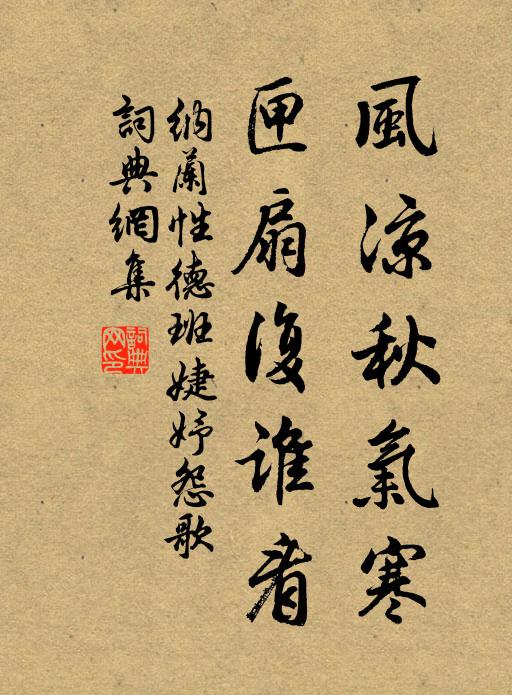 風涼秋氣寒
匣扇復誰看
納蘭性德班婕妤怨歌
詞典網集
詞典网印